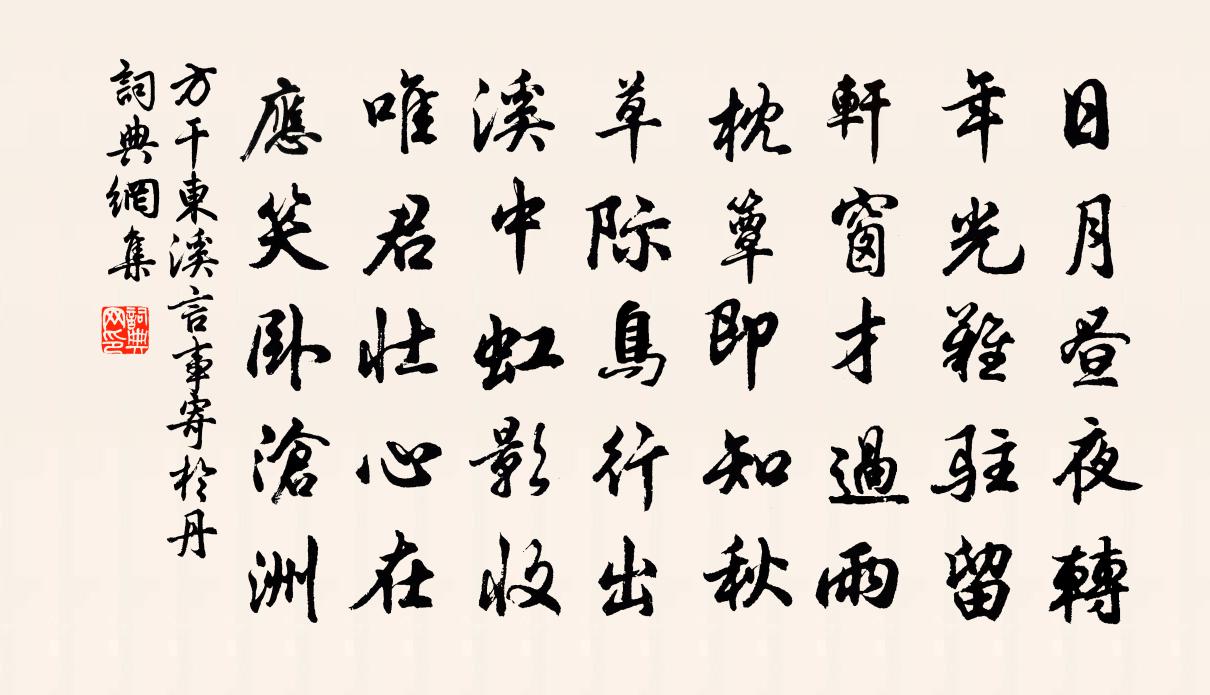 日月晝夜轉
年光難駐留
軒窗才過雨
枕簟即知秋
草際鳥行出
溪中虹影收
唯君壯心在
應笑臥滄洲
方干東溪言事寄於丹
詞典網集
詞典网印